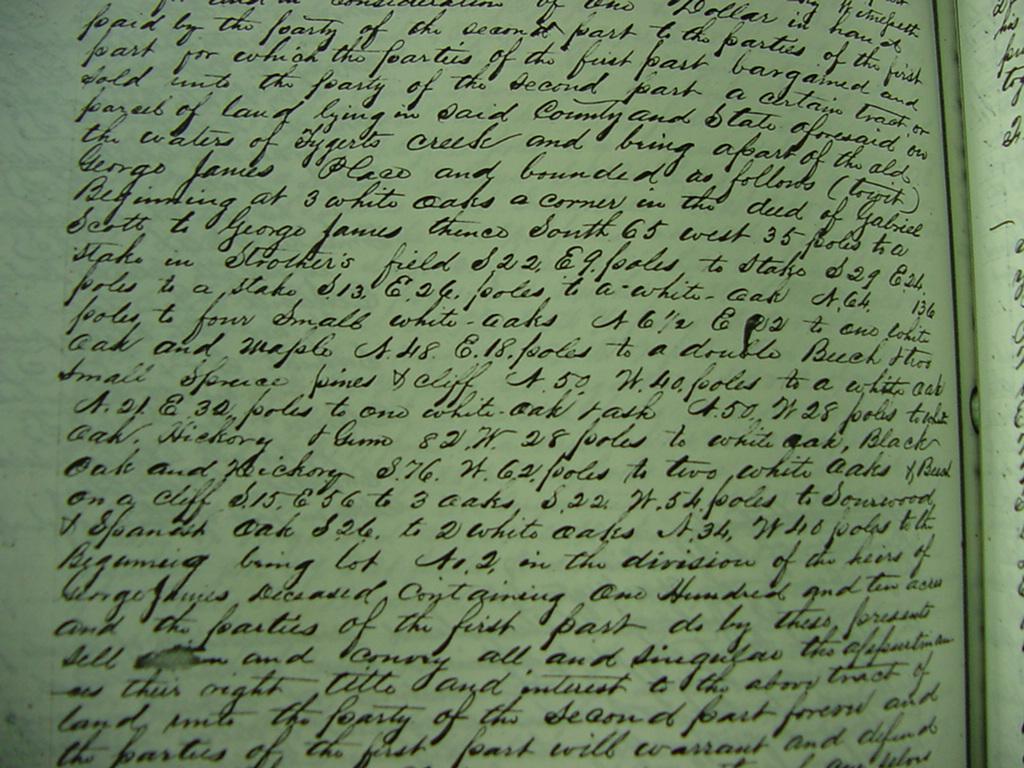 and in consideration of one Dollar in hand
paid by the party of the second part to the parties of the first
part for which the parties of the first part bargained and
sold unto the party of the second part a certain tract or
parcel of land lying in said County and State aforesaid on
the waters of Tygerts creek and being a part of the old
George James Place and bounded as follows (towit)
Beginning at 3 white oaks a corner in the deed of Gabriel
Scott to George James thence South 65 west 35 poles to a
stake in Strother's field S.22. E 9. poles to stake S 29 E. 24.
poles to a stake S.13. E. 26. poles to a white-oak N. 64. 136
poles to four small white-oaks N 6½ E 22 to one white
oak and maple N. 48. E. 18. poles to a double Beech & two
small Spruce pines & cliff N. 50. W. 40. poles to a white oak
N. 21. E 32. poles to one white-oak & ash N. 50. W 28 poles to white
oak. Hickory & Gum 82. W. 28 poles to white oak, Black
oak and Hickory S. 76. W. 62. poles to two white oaks & Beech
on a cliff S. 15. E 56 to 3 oaks, S. 22. W. 54. poles to Sourwood,
& Spanish oak S 26. to 2 white oaks N. 34. W 40 poles to the
Beginning being lot No. 2. in the division of the heirs of
George James, Deceased, Containing One Hundred and ten acres
and the parties of the first part do by these, presents
sell and convey all and singular the appurtenan
-ces their right title and interest to the above tract of
land, unto the party of the second part forever and
the parties of, the first part will warrant and defend